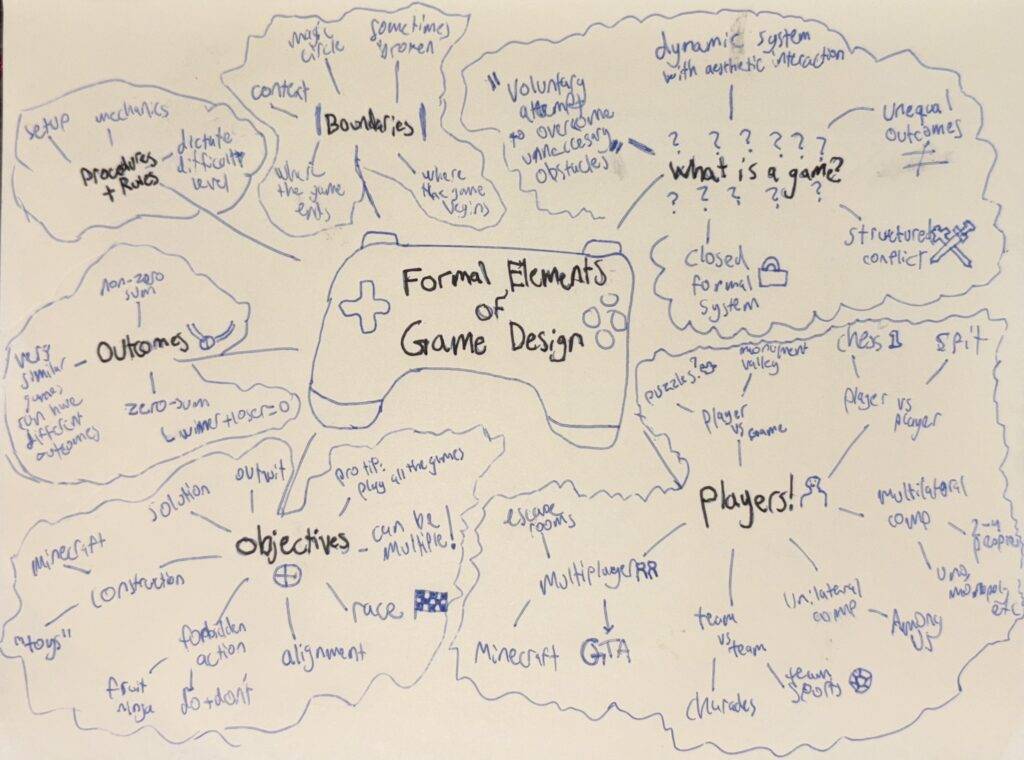 Formal Elements
of
Game Design
setup
mechanics
dictate
difficulty
level
Procedures
+ Rules
magic
circle
sometimes
broken
context
Boundaries
where
the game
ends
where
the game
begins
dynamic system
with aesthetic interaction
"Voluntary
attempt
to overcome
unneccesary
obstacles"
unequal
outcomes
≠
? ? ? ? ? ?
What is a game?
? ? ? ? ?
closed
formal
system
structured
conflict
non-zero
sum
Outcomes
very
similar
games
can have
different
outcomes
zero-sum
winner + loser = 0
outwit
pro tip:
play all the games
solution
Objectives
can be
multiple!
minecraft
construction
"toys"
race
forbidden
action
alignment
fruit
ninja
do + don't
puzzles?
monument
valley
player
vs
game
chess
spit
player vs
player
Players!
escape
rooms
multiplayer
Minecraft
GTA
team
vs
team
charades
team
sports
unilateral
comp
Among
us
multilateral
comp
uno,
monopoly
etc